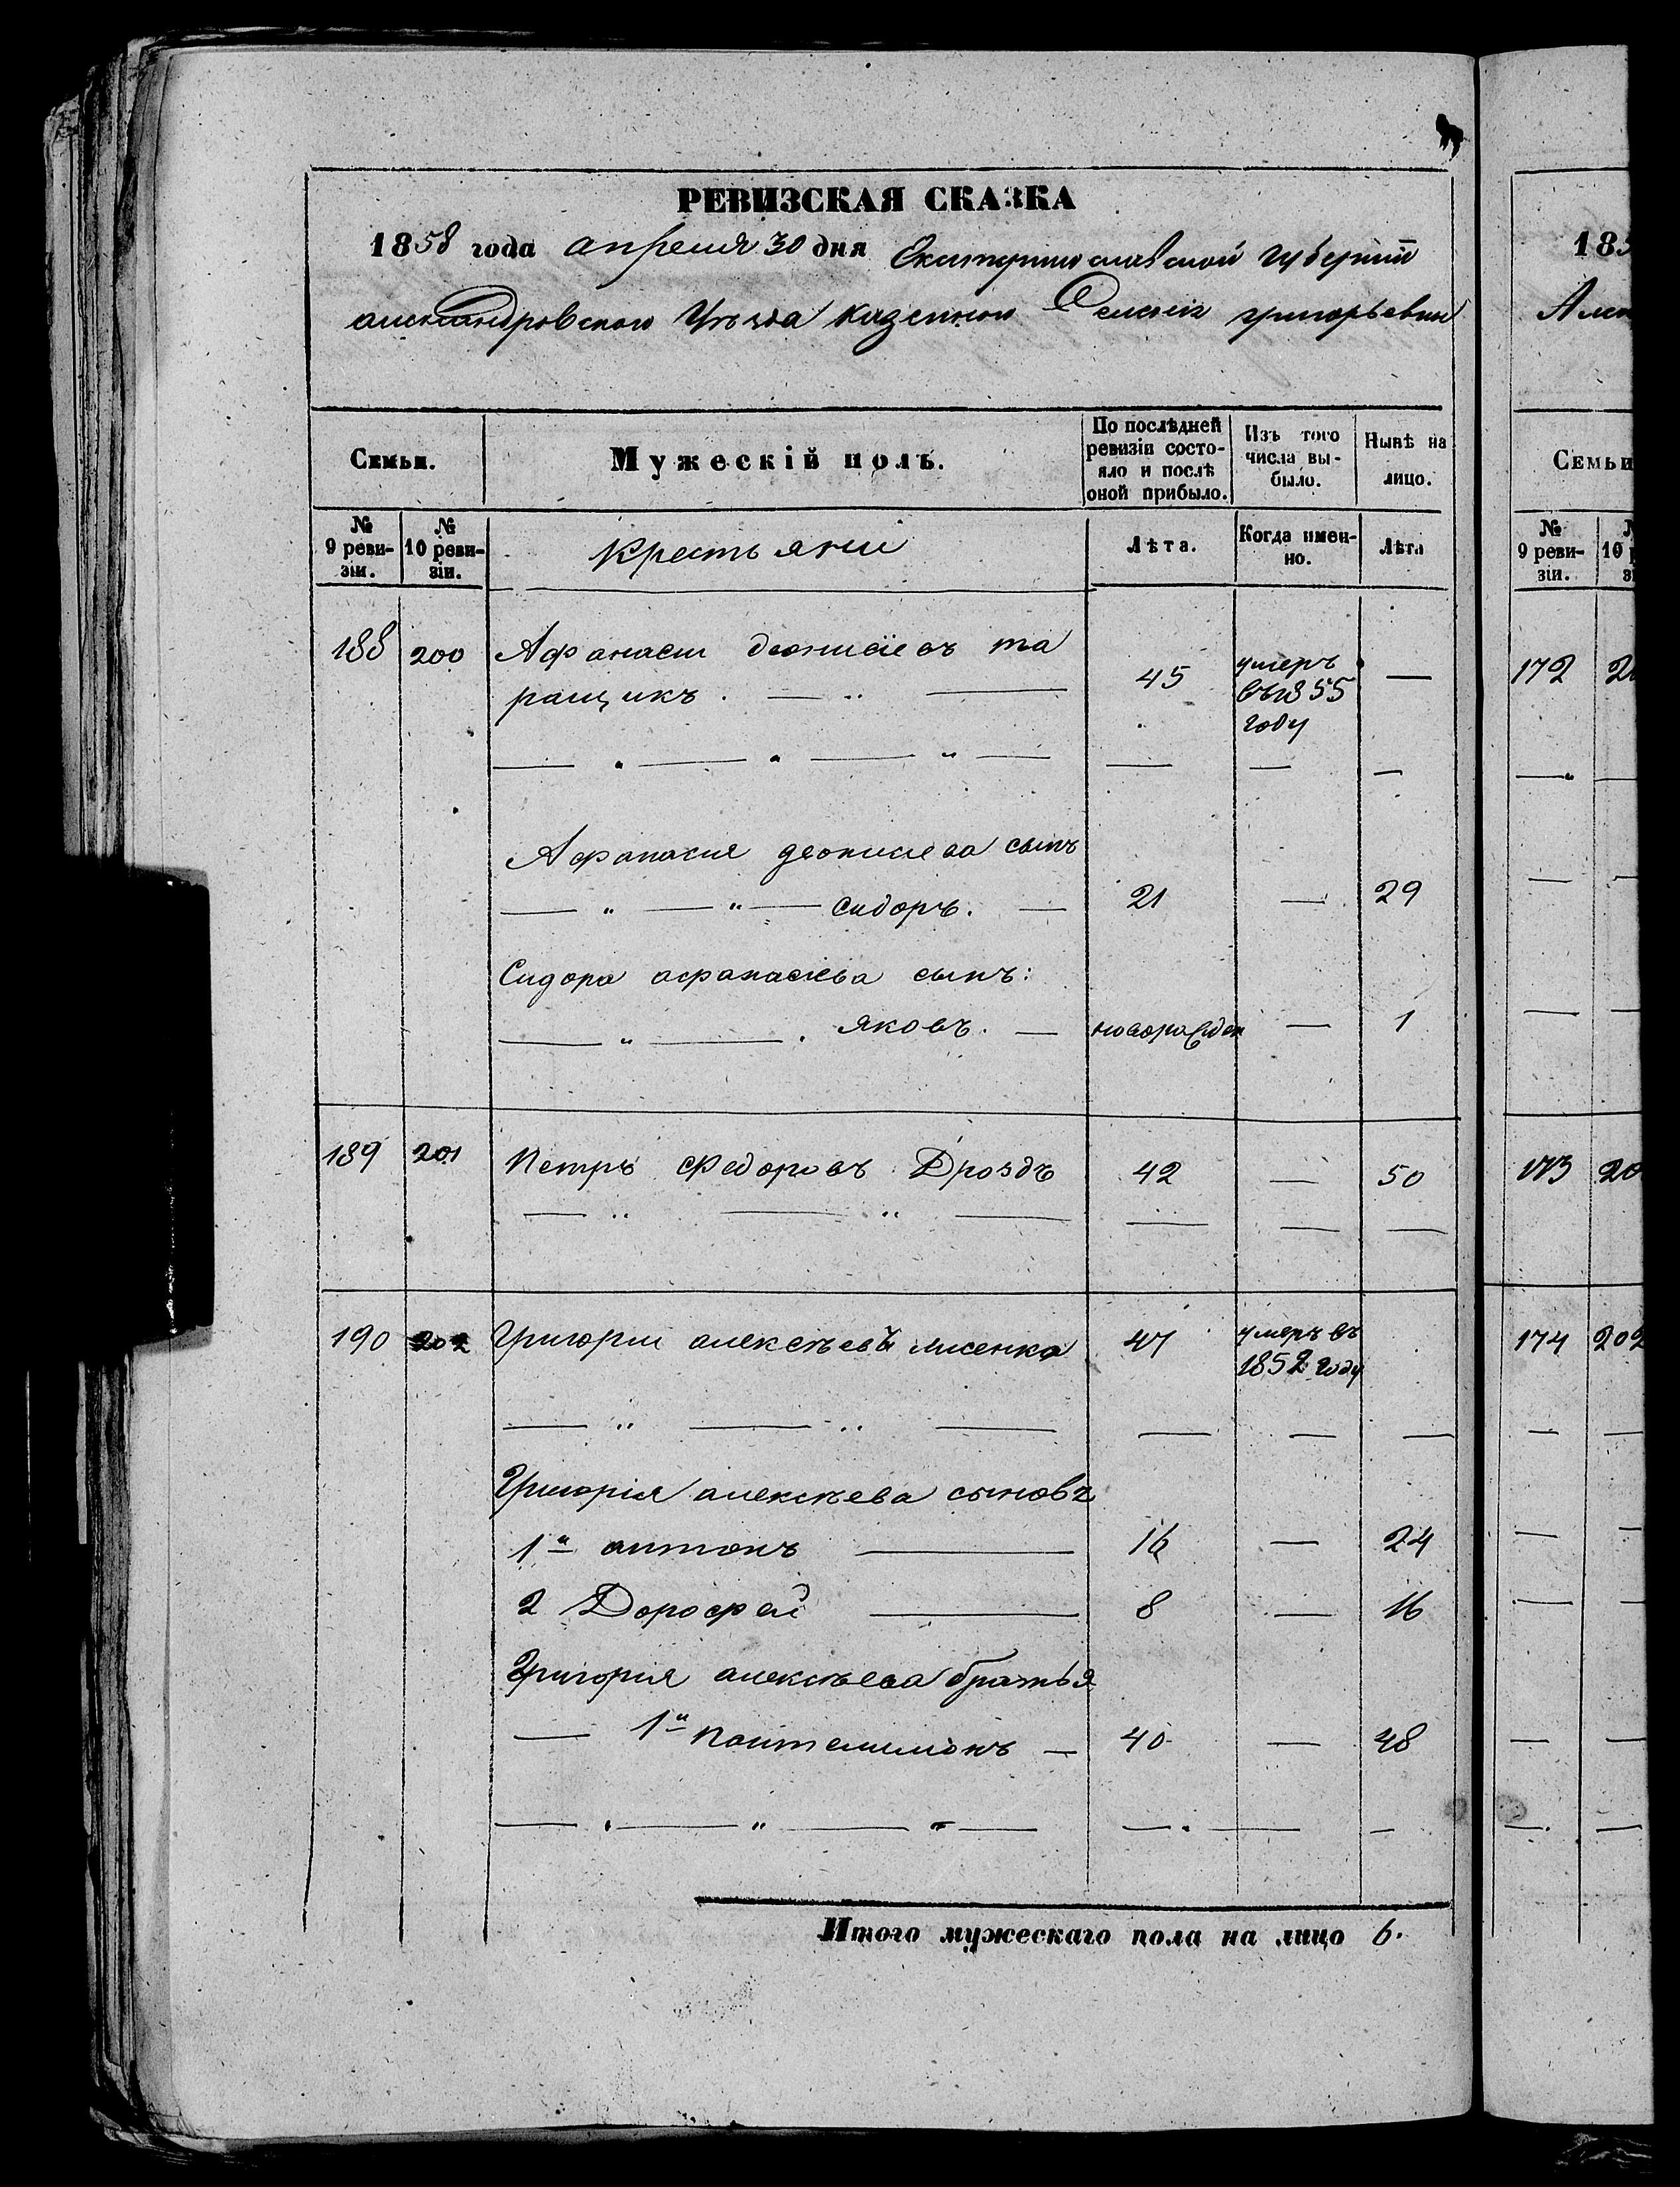 РЕВИЗСКАЯ СКАЗКА
1858 года апреля 30 дня Екатеринославской губернiи
александровского уѣзда казенного Селенiя григорьевки
Семьи.
Мужескiй полъ.
По послѣдней ревизiи состояло и послѣ оной прибыло.
Изъ того числа выбыло.
Нынѣ на лицо.
№ 9 ревизiи.
№ 10 ревизiи.
Крестьяни
Лѣта.
Когда именно.
Лѣта
188 200 Афанасии деонисiевъ та
ращикъ. 45 умеръ въ 1855 году —
Афанасия деонисиева сынъ
сидоръ. — 21 — 29
Сидора афанасiева сынъ:
яковъ. — новорожден — 1
189 201 Петръ Федоровъ Дроздъ 42 — 50
190 202 Григории алексѣевъ лисенко 47 умеръ въ 1852 году
Григорiя алексѣева сыновъ
1й антонъ — 16 — 24
2 Дорофей — 8 — 16
Григорiя алексѣева братья
— 1й Пантелимонъ — 40 — 48
Итого мужескаго пола на лицо 6.
183
Але
Семьи
№ 9 ревизiи.
172
173 20
174 202